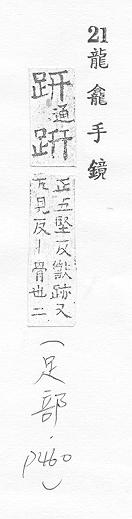 21 龍龕手鏡
趼通趼
正五堅反獸跡又
古見反丨骨也二
(足部．p460)